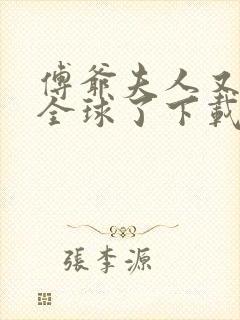 傅爺夫人又
全球了下載
張李源